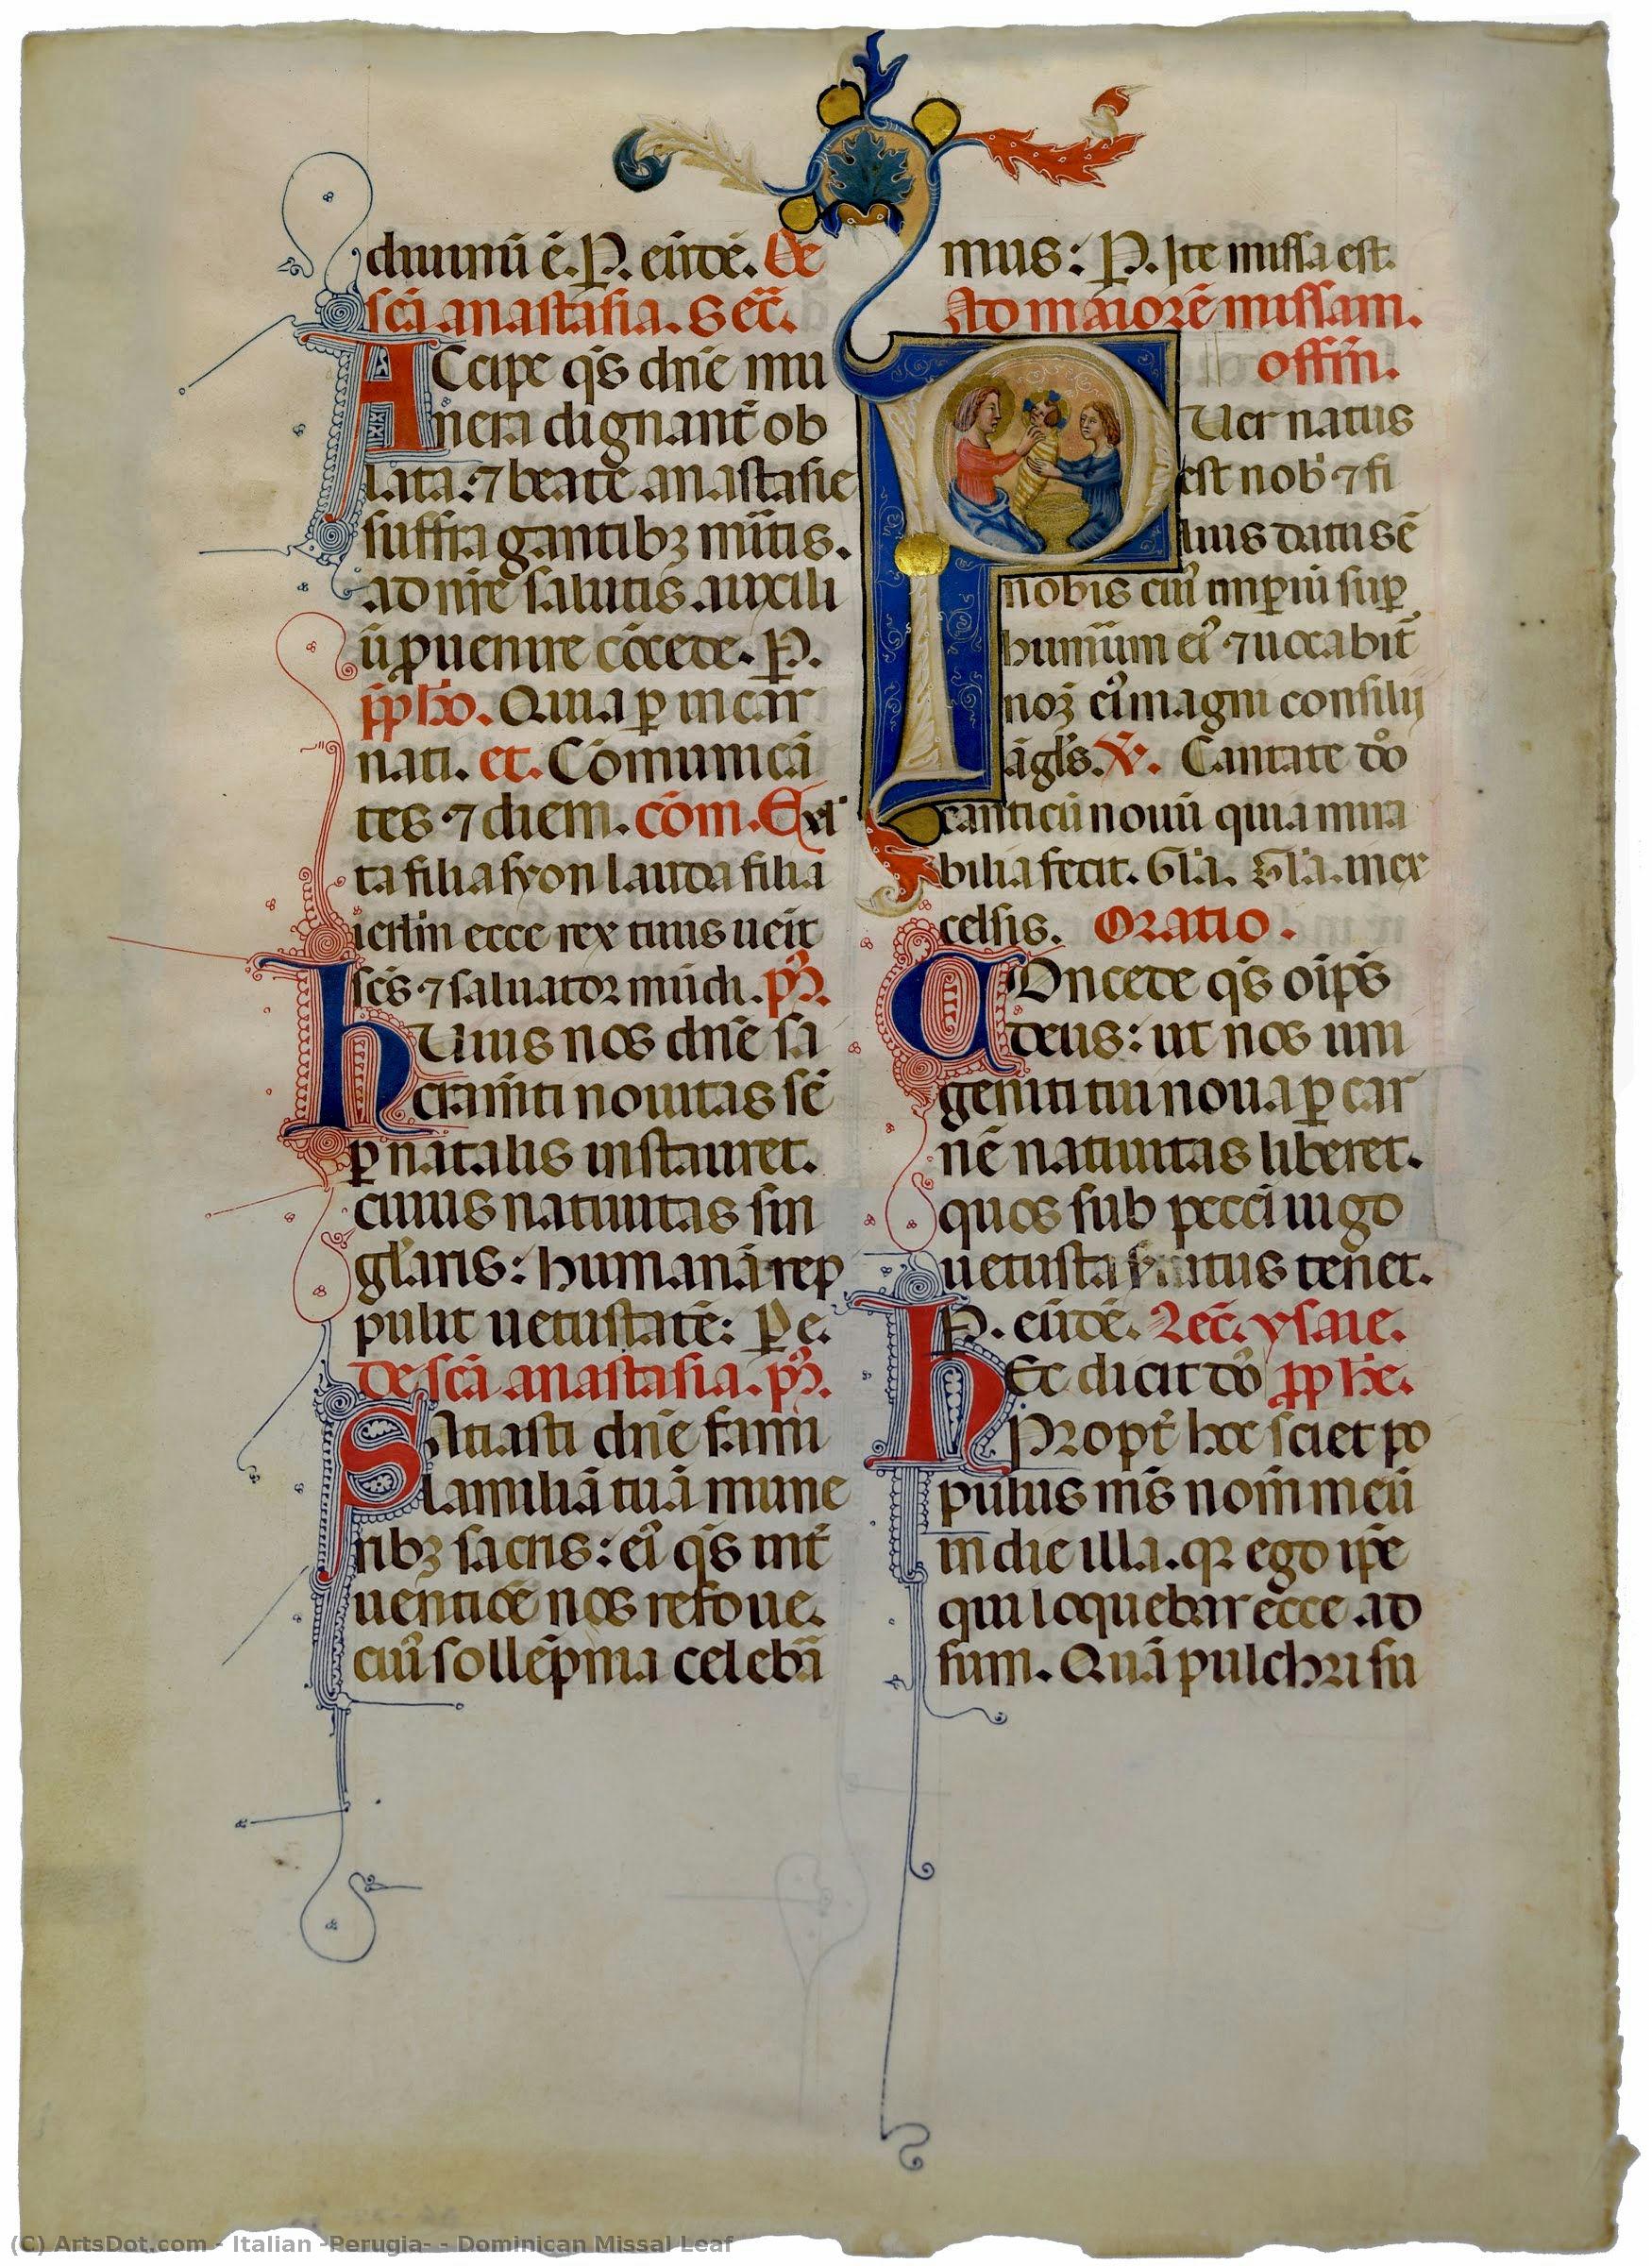 diuinū ē. P. eūdē. De
scā anastasia. Secr̄.
ACcipe qs̄ dn̄e mu
nera dignant̄ ob
lata: ⁊ beate anastasie
suffragantibꝫ mītis.
ad nr̄e salutis auxili
ū ꝓuenire cōcede. P.
p̄p̄hō. Quia ꝑ incar
nati. et. Cōmunicā
tes ⁊ diem. cōm. Exl̓
ta filia syon lauda filia
ierl̄m ecce rex tuus ueīt
scs̄ ⁊ saluator mūdi. p̄9.
hUius nos dn̄e sa
cramīti nouitas sē
ꝑ natalis instauret.
cuius natiuitas sin
gl̓aris: humanā rep
pulit uetustatē: Pe.
De scā anastasia. p̄9.
SAtiasti dn̄e fami
l familiā tuā mune
ribꝫ sacris: eiꝰ qs̄ int̄
uentiōe nos refoue.
cuiꝰ sollēpnia celebā
mus: P. Ite missa est.
Ad maiorē missam.
offm̄.
PUer natus
est nob̓ ⁊ fi
lius datus ē
nobis cuiꝰ imꝑiū suꝑ
humūm eiꝰ ⁊ uocabit̄
noꝫ eiꝰ magni consilij
āgl̓s. V̄. Cantate dn̄o
canticū nouū quia mira
bilia fecit. Gl̓a. Gl̓a. in ex
celsis. Oratio.
COncede qs̄ oīps̄
deus: ut nos uni
geniti tui noua ꝑ car
nē natiuitas liberet.
quos sub peccī iugo
uetusta seruitus tenet.
P. eūdē. Lec̄. ysaie.
hEc dicit dn̄s p̄p̄he.
Propt̄ hoc sciet po
pulus ms̄ nom̄ meū
in die illa. qꝛ ego ip̄e
qui loquebar ecce ad
sum. Quā pulchri su
(C) ArtsDot.com - Italian -Perugia- - Dominican Missal Leaf